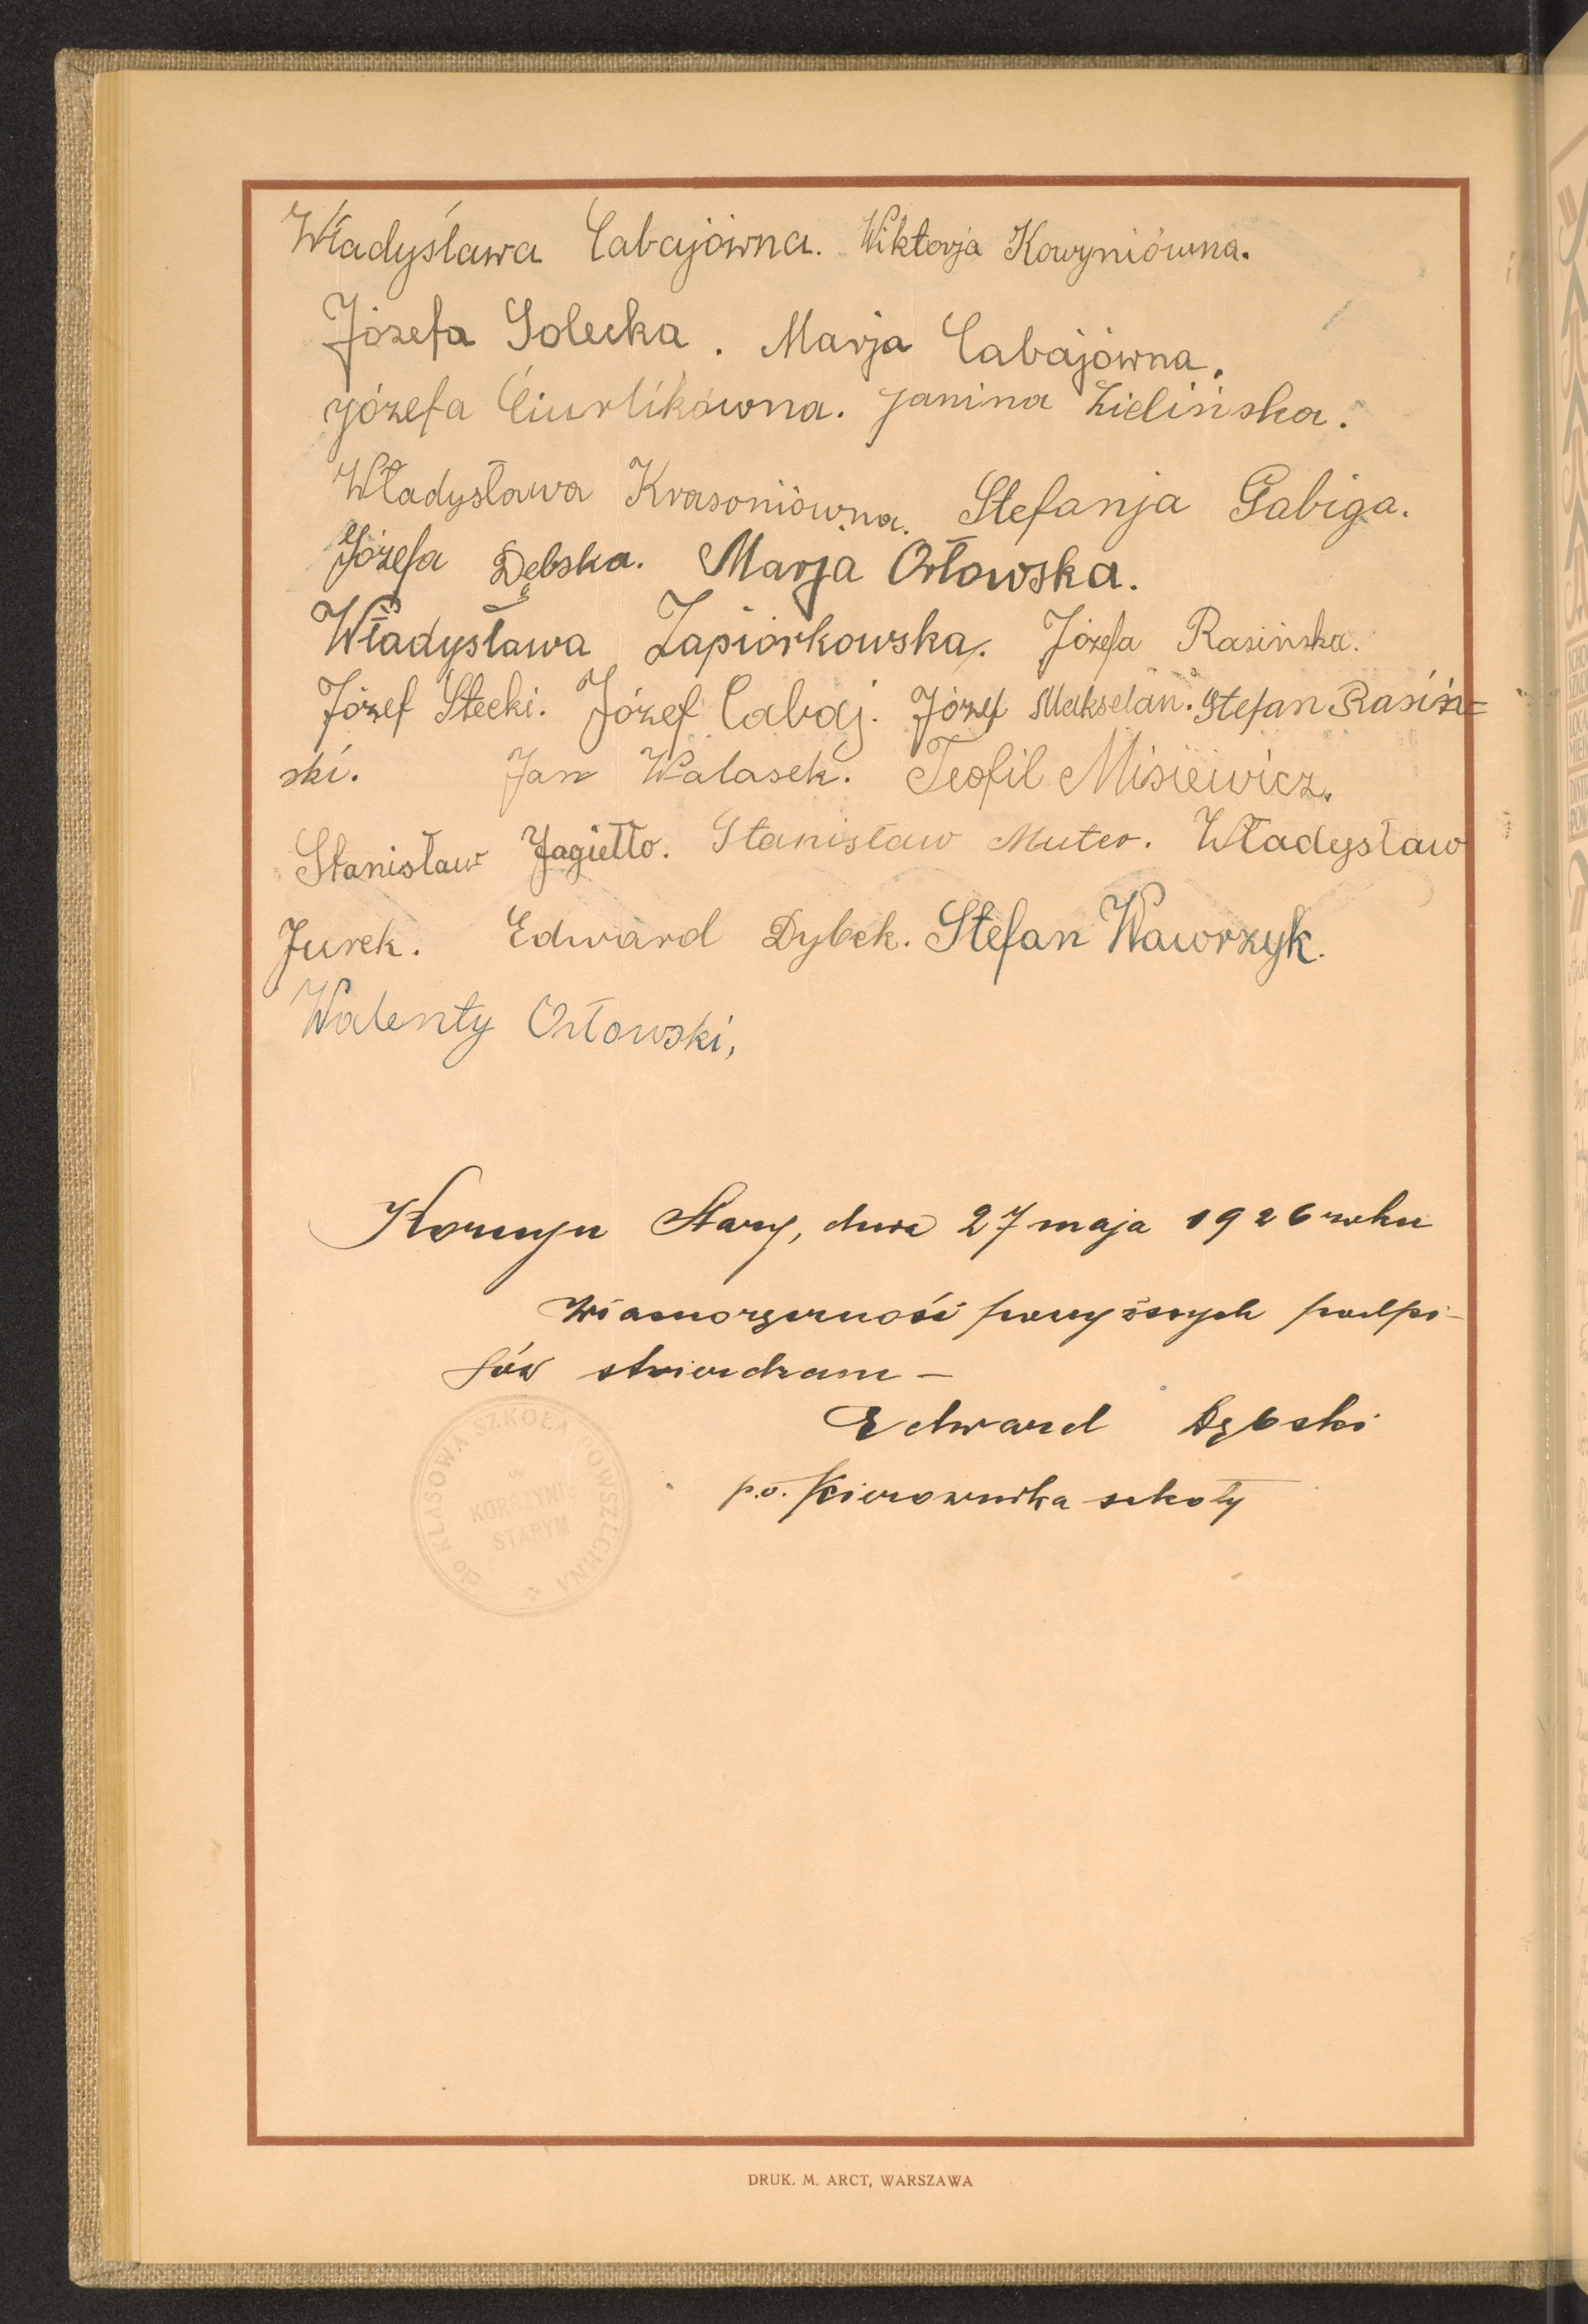 Władysława Cabajówna. Wiktorja Kowyniówna.
Józefa Golecka. Marja Cabajówna.
Józefa Ciurlikówna. Janina Zielińska.
Władysława Krasoniówna. Stefanja Gabiga.
Józefa Dębska. Marja Orłowska.
Władysława Zapiórkowska. Józefa Rasińska.
Józef Stecki. Józef Cabaj. Józef Makselan. Stefan Rasiń=
ski. Jan Walasek. Teofil Misiewicz.
Stanisław Jagiełło. Stanisław Muter. Władysław
Jurek. Edward Dybek. Stefan Wawrzyk.
Walenty Orłowski,
Stary, dnia 27 maja 1926 roku
Własnoręczność powyższych podpi-
sów stwierdzam —
Edward Dębski
p.o. Kierownika szkoły
KLASOWA SZKOŁA POWSZECHNA
STARYM
DRUK. M. ARCT, WARSZAWA